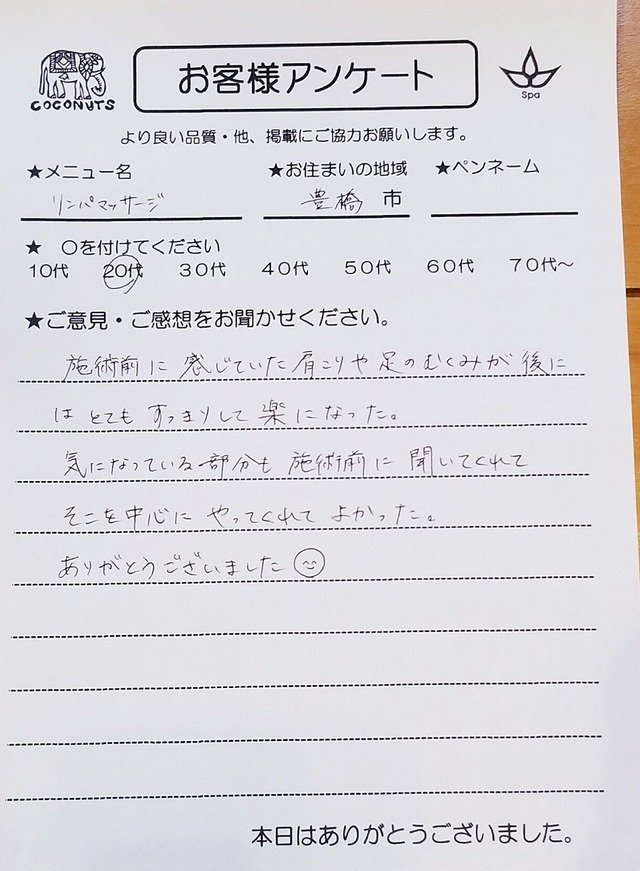 COCONUTS
お客様アンケート
Spa
より良い品質・他、掲載にご協力お願いします。
★メニュー名 ★お住まいの地域 ★ペンネーム
リンパマッサージ 豊橋 市
★ 〇を付けてください
10代 20代 30代 40代 50代 60代 70代～
★ご意見・ご感想をお聞かせください。
施術前に感じていた肩こりや足のむくみが後に
はとてもすっきりして楽になった。
気になっている部分も施術前に聞いてくれて
そこを中心にやってくれてよかった。
ありがとうございました
本日はありがとうございました。